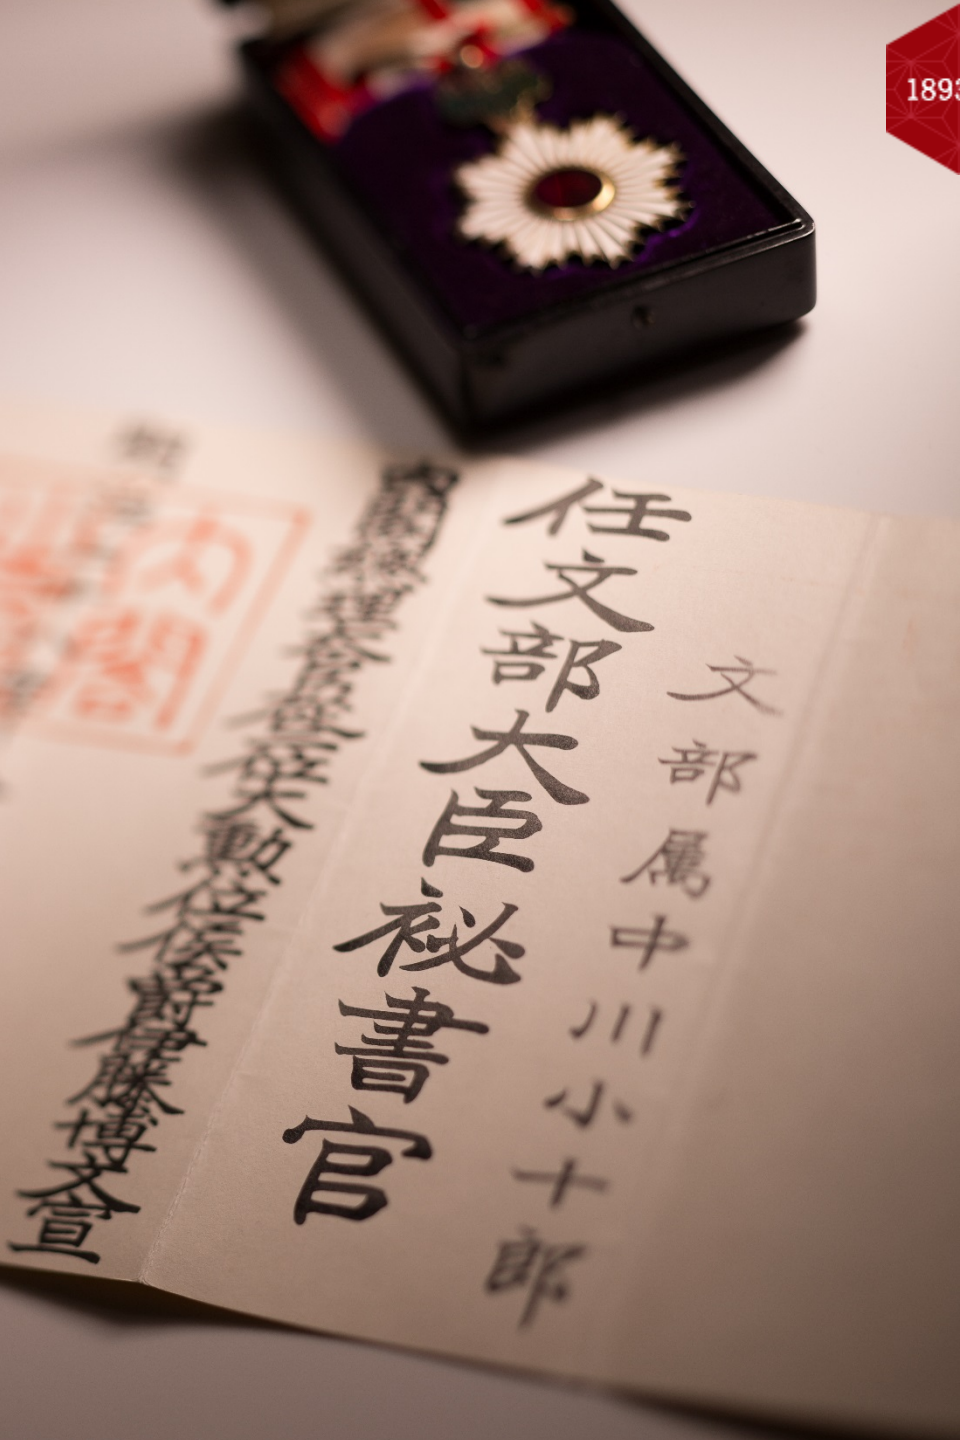 1893
文部属中川小十郎
任文部大臣秘書官
内閣総理大臣従二位大勲位侯爵伊藤博文宣
内閣